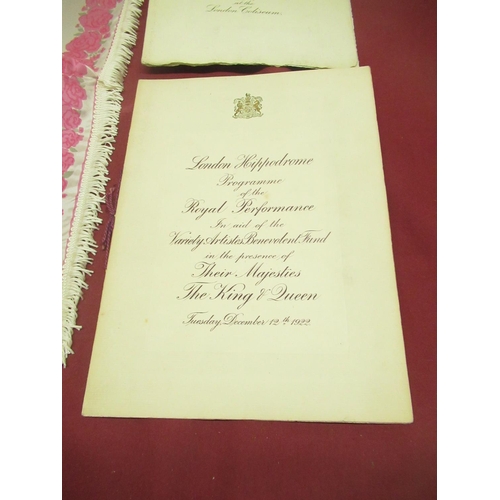 at the
London Coliseum.
London Hippodrome
Programme
of the
Royal Performance
In aid of the
Variety Artistes Benevolent Fund
in the presence of
Their Majesties
The King & Queen
Tuesday, December 12th 1922